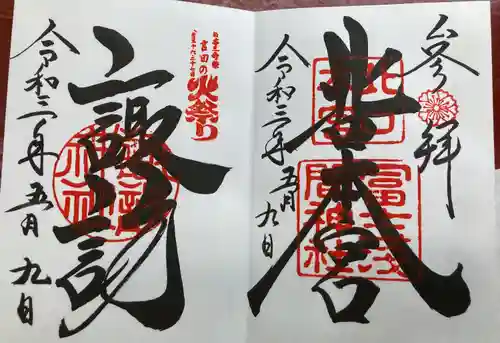 奉拝
北口本宮
冨士浅間神社
令和三年五月九日
日本三奇祭
吉田の火祭り
諏訪
令和三年五月九日